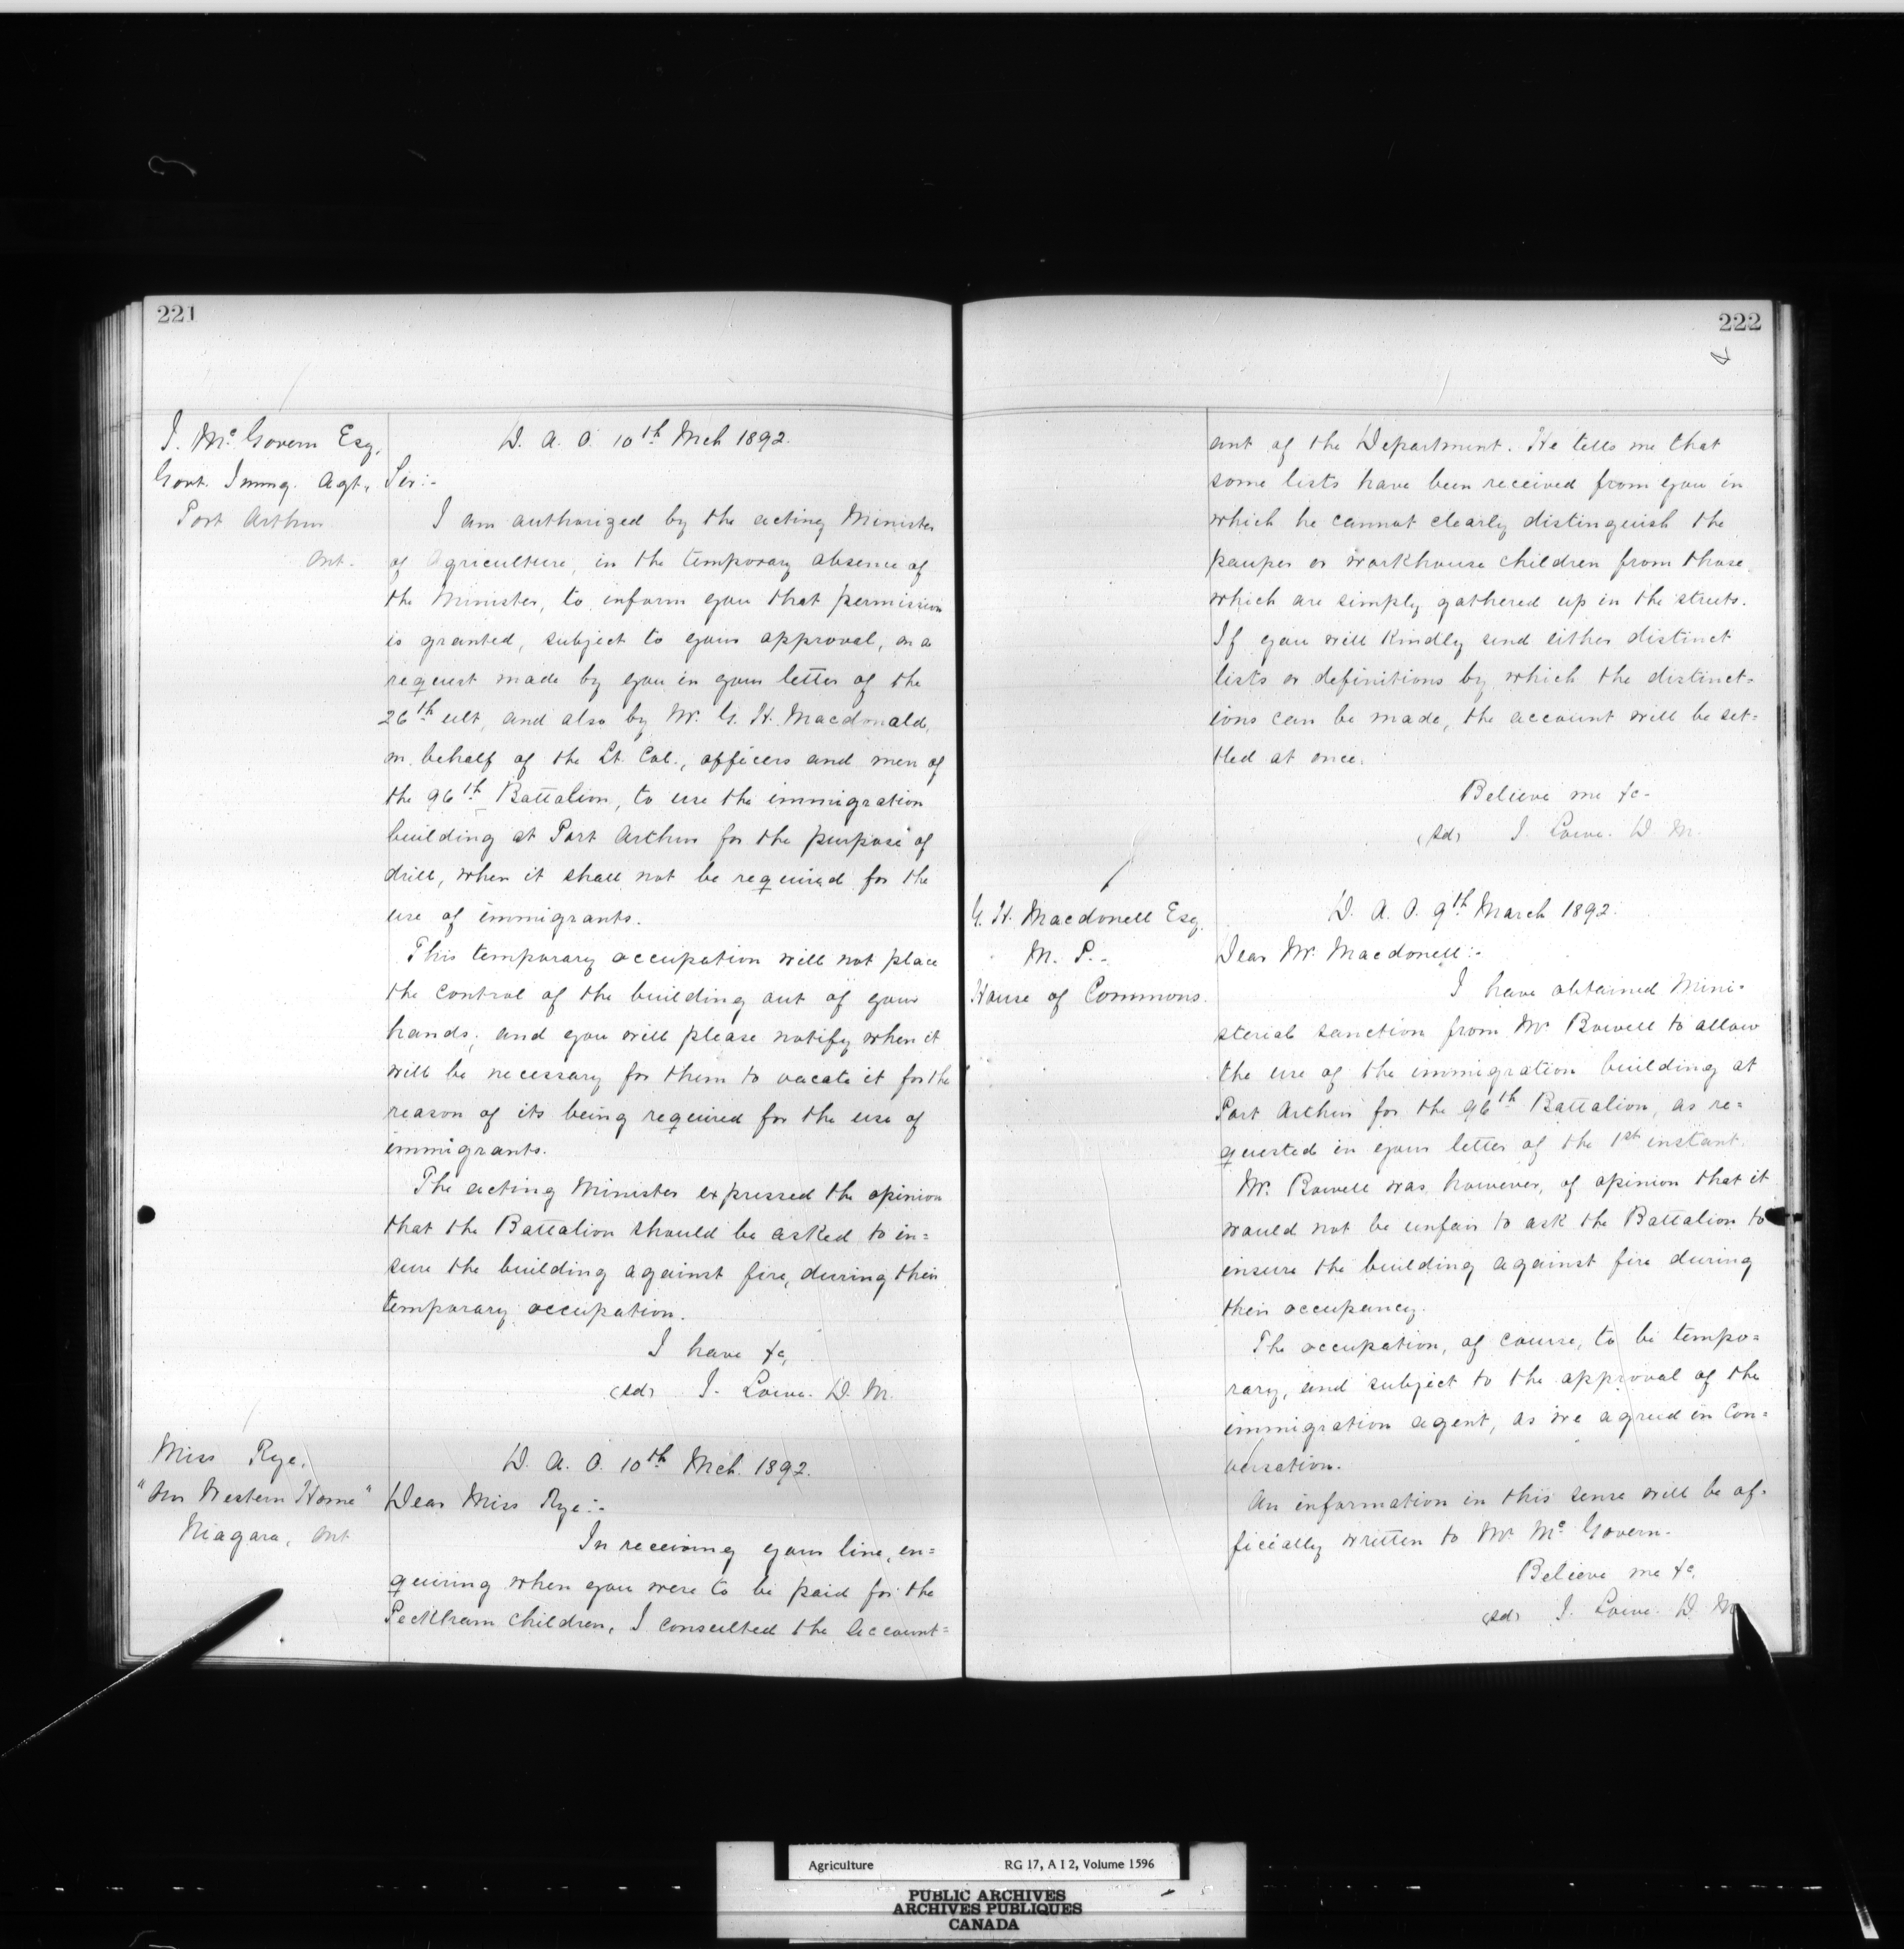 221
J. Mc. Govern Esq,
Govt. Immg. Agt,
Port Arthur
Ont.
D. A. O. 10th Mch 1892.
Sir:-
I am authorized by the acting Minister
of Agriculture, in the temporary absence of
the Minister, to inform you that permission
is granted, subject to your approval, on a
request made by you in your letter of the
26th ult, and also by Mr. G. H. Macdonald,
on behalf of the Lt. Col., officers and men of
the 96th Battalion, to use the immigration
building at Port Arthur for the purpose of
drill, when it shall not be required for the
use of immigrants.
This temporary occupation will not place
the control of the building out of your
hands; and you will please notify when it
will be necessary for them to vacate it for the
reason of its being required for the use of
immigrants.
The acting Minister expressed the opinion
that the Battalion should be asked to in=
sure the building against fire, during their
temporary occupation.
I have &c,
(sd) J. Lowe. D. M.
Miss Rye,
"Our Western Home"
Niagara, Ont
D. A. O. 10th Mch. 1892.
Dear Miss Rye:-
In receiving your line, en=
quiring when you were to be paid for the
Peckham children, I consulted the account=
222
ant of the Department. He tells me that
some lists have been received from you in
which he cannot clearly distinguish the
pauper or workhouse children from those
which are simply gathered up in the streets.
If you will kindly send either distinct
lists or definitions by which the distinct=
ions can be made, the account will be set=
tled at once.
Believe me &c-
(sd) J. Lowe. D M.
G. H. Macdonell Esq.
M. P.-
House of Commons.
D. A. O. 9th March 1892.
Dear Mr. Macdonell:-
I have obtained Mini-
sterial sanction from Mr Bowell to allow
the use of the immigration building at
Port Arthur for the 96th Battalion, as re=
quested in your letter of the 1st instant.
Mr. Bowell was, however, of opinion that it
would not be unfair to ask the Battalion to
insure the building against fire during
their occupancy.
The occupation, of course, to be tempo=
rary, and subject to the approval of the
immigration agent, as we agreed in con=
versation.
An information in this sense will be of-
ficially written to Mr Mc. Govern.
Believe me &c,
(sd) J. Lowe. D. M.
Agriculture RG 17, A I 2, Volume 1596
PUBLIC ARCHIVES
ARCHIVES PUBLIQUES
CANADA